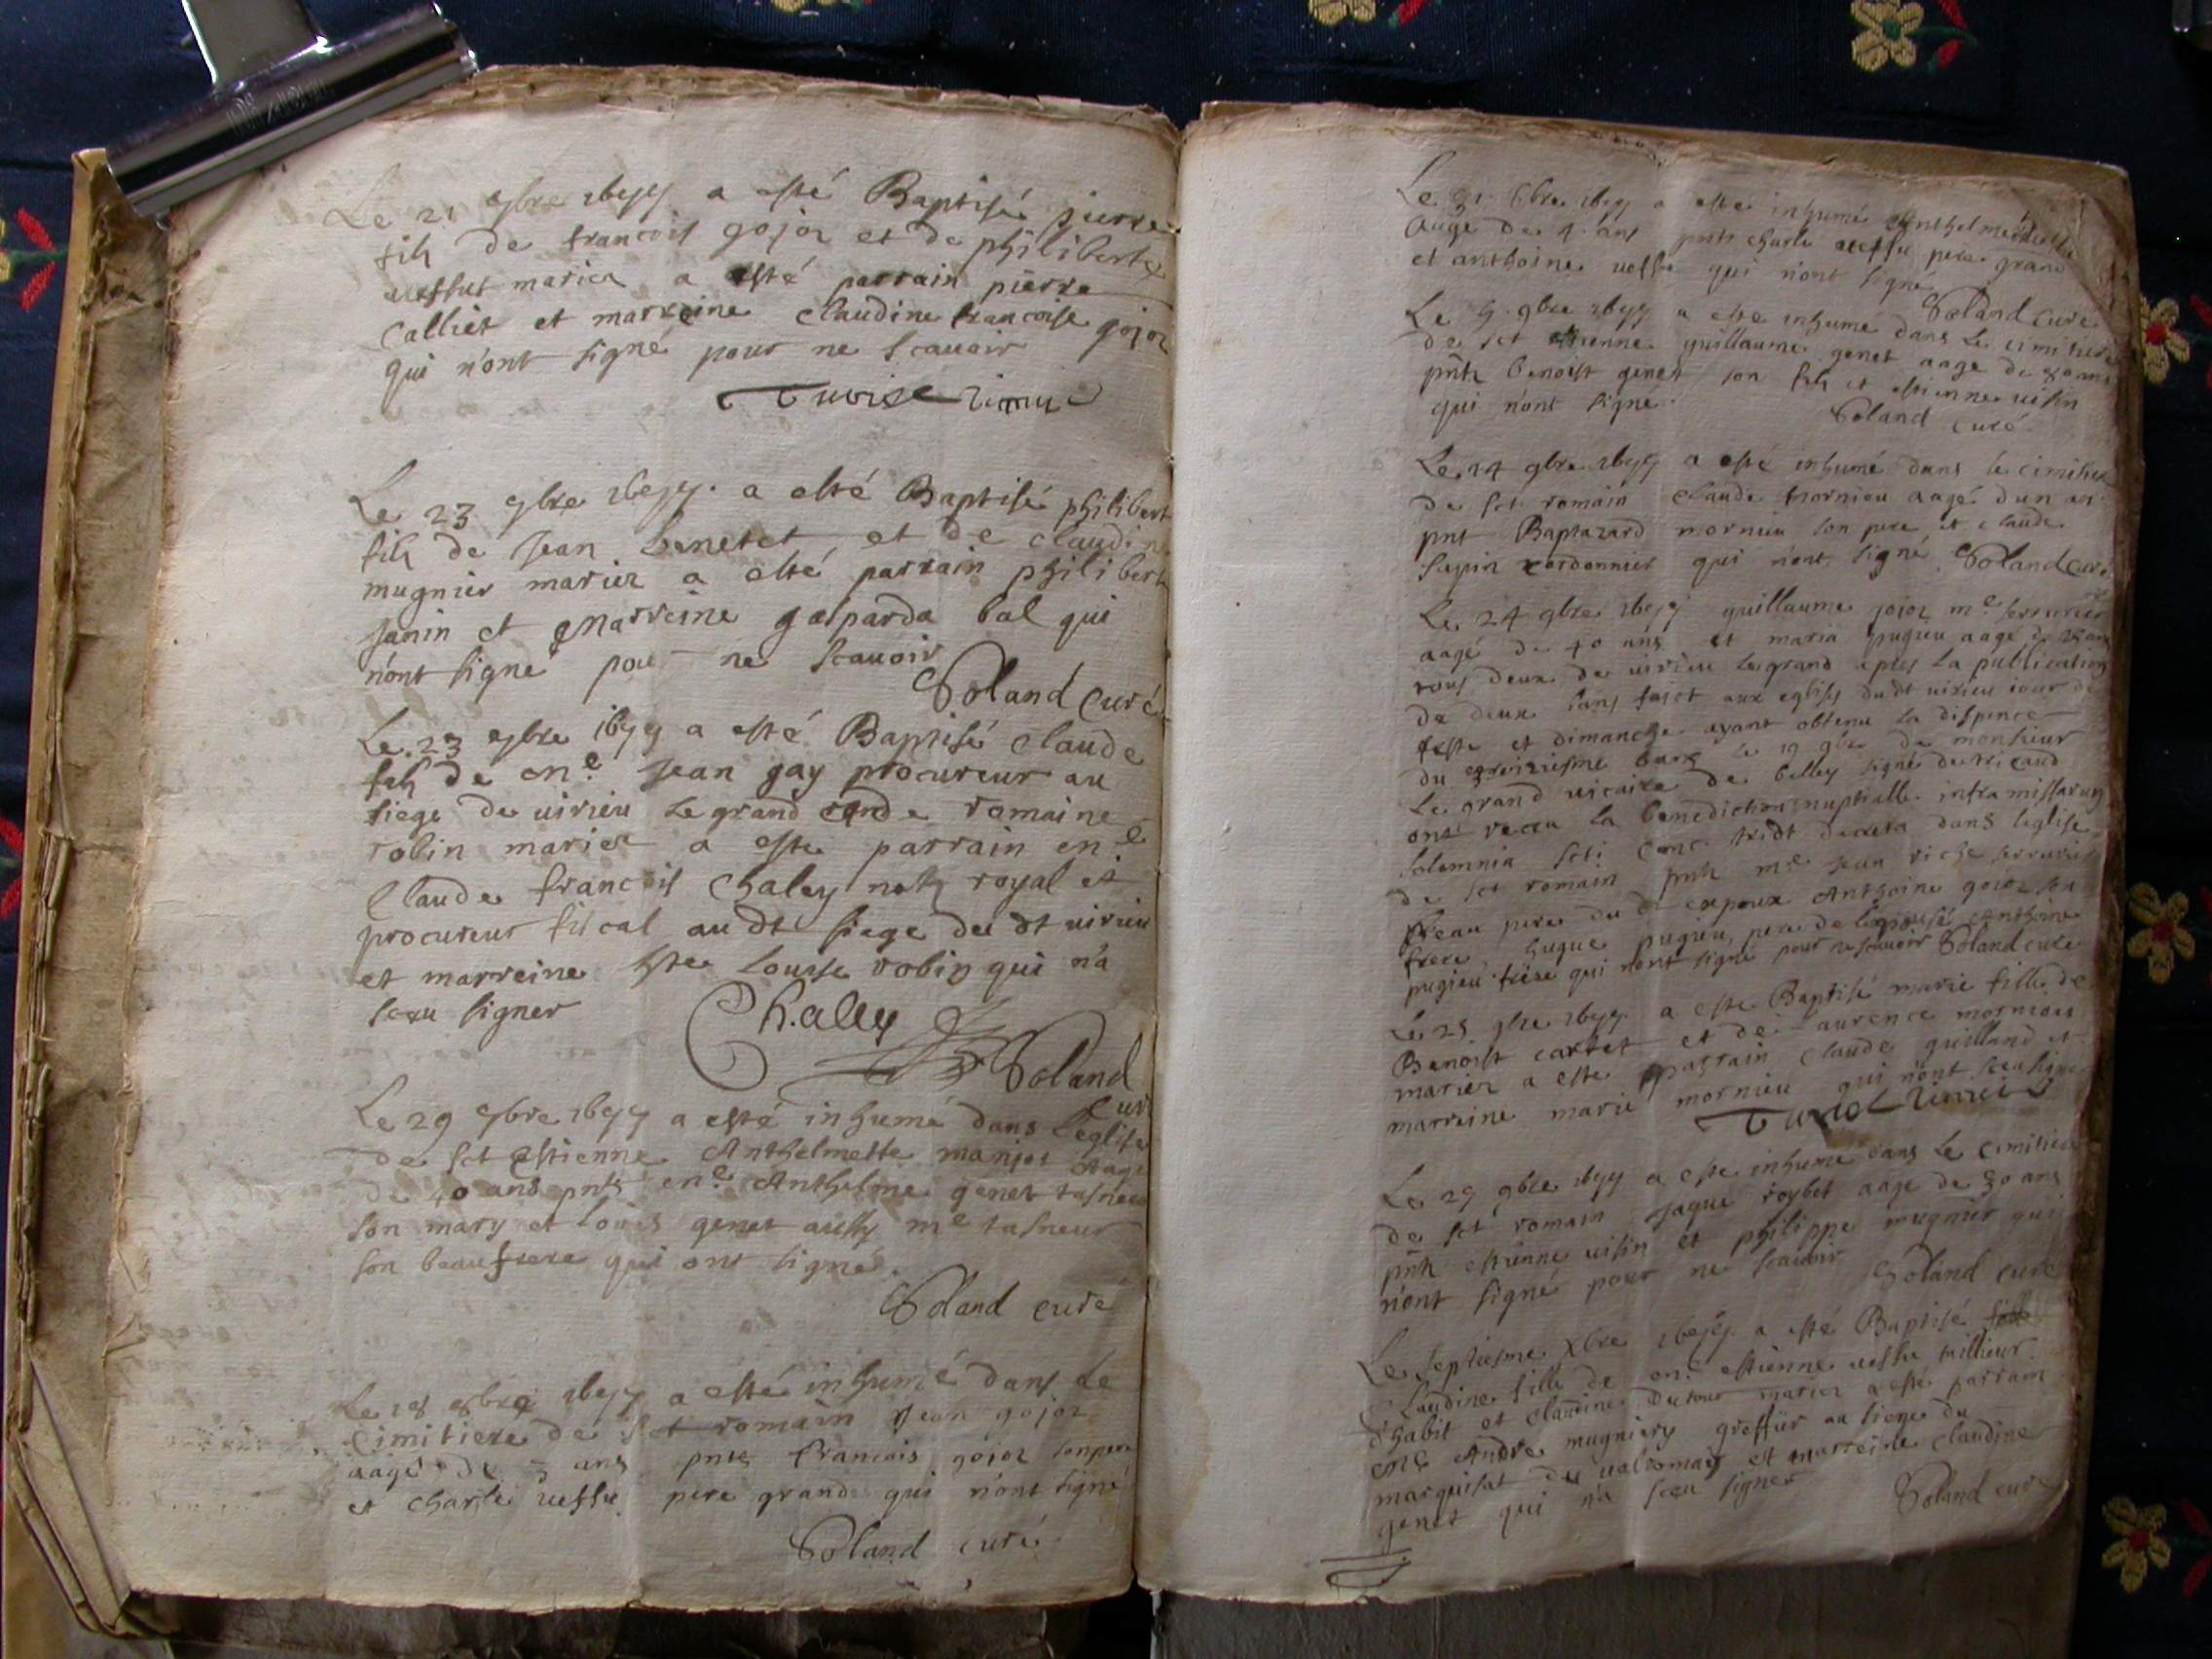 Le 21 7bre 1677 a esté Baptisé pierre
fils de francois gojoz et de philiberte
uessut mariez a esté parrain pierre
Calliet et marreine Claudine francoise gojoz
qui n'ont signé pour ne scauoir
Le 23 7bre 1677. a esté Baptisé philibert
fils de Jean benetet et de claudine
mugnier mariez a esté parrain philibert
Janin et marreine gasparda bal qui
n'ont signé pour ne scauoir
Soland Curé
Le 23 7bre 1677 a esté Baptisé claude
fils de Jean gay procureur au
siege de uirieu le grand romaine
robin mariez a este parrain
Claude francois Chaley royal et
procureur fiscal audt siege du dt uirieu
et marreine louise robin qui n'a
sceu signer
Chaley
Soland
Cur
Le 29 7bre 1677 a esté inhumé dans l'eglise
de sct estienne Anthelmette manjot aage
de 40 ans pnts Anthelme genet tasneur
son mary et louis genet aussy me tasneur
son beaufrere qui ont signé.
Soland curé
Le 18 8bre 1677 a esté inhumé dans le
Cimitiere de sct romain Jean gojoz
aagé de ans pnts francois gojoz son pere
et Charle uessu pere grand qui n'ont signé
Soland curé
Le 31 8bre 1677 a este inhumé
Aagé de 4 ans pnts charle uessu pere grand
et anthoine uessu qui n'ont signé
Soland Curé
Le 9bre 1677 a este inhumé dans le cimitiere
de sct estienne guillaume genet aage de 80 ans
pnts benoist genet son fils et estienne uisin
qui n'ont signe.
Soland curé
Le 14 9bre 1677 a esté inhumé dans le cimitier
de sct romain claude mornieu aagé d'un an
pnt mornieu son pere et claude
Supin cordonnier qui n'ont signé Soland Curé
Le 24 9bre 1677 guillaume gojoz me serrurier
aagé de 40 ans et maria pugieu aage de ans
tous deux de uirieu le grand apres la publication
de deux bans faict aux eglises dudt uirieu iour de
feste et dimanche ayant obtenu la dispence
du troiziesme banc le 19 9bre de monsieur
Le grand uicaire de belley signé
ont receu la benediction nuptialle infra missarum
solemnia decreta dans l'eglise
de sct romain pnts me Jean riche serrurier
beau pere du dt expoux Anthoine gojoz son
frere, hugue pugieu, pere de l'epousé Anthoine
pugieu frere qui n'ont signé pour ne scauoir Soland curé
Le 25 9bre 1677. a esté Baptisé marie fille de
Benoist cartet et de laurence mornieu
mariez a esté parrain Claude guilland et
marreine marie mornieu qui n'ont sceu signer
Le 29 9bre 1677 a este inhumé dans le cimitiere
de sct romain Jaque roybet aage de 30 ans
pnts estienne uisin et philippe mugnier qui
n'ont signé pour ne scauoir
Soland curé
Le septiesme Xbre 1677. a esté Baptisé
Claudine fille de estienne uessu tallieur
d'habit et Claudine dutour mariez a esté parrain
André mugniery greffier au siege du
marquisat du ualromey et marreine claudine
genet qui n'a sceu signer
Soland curé